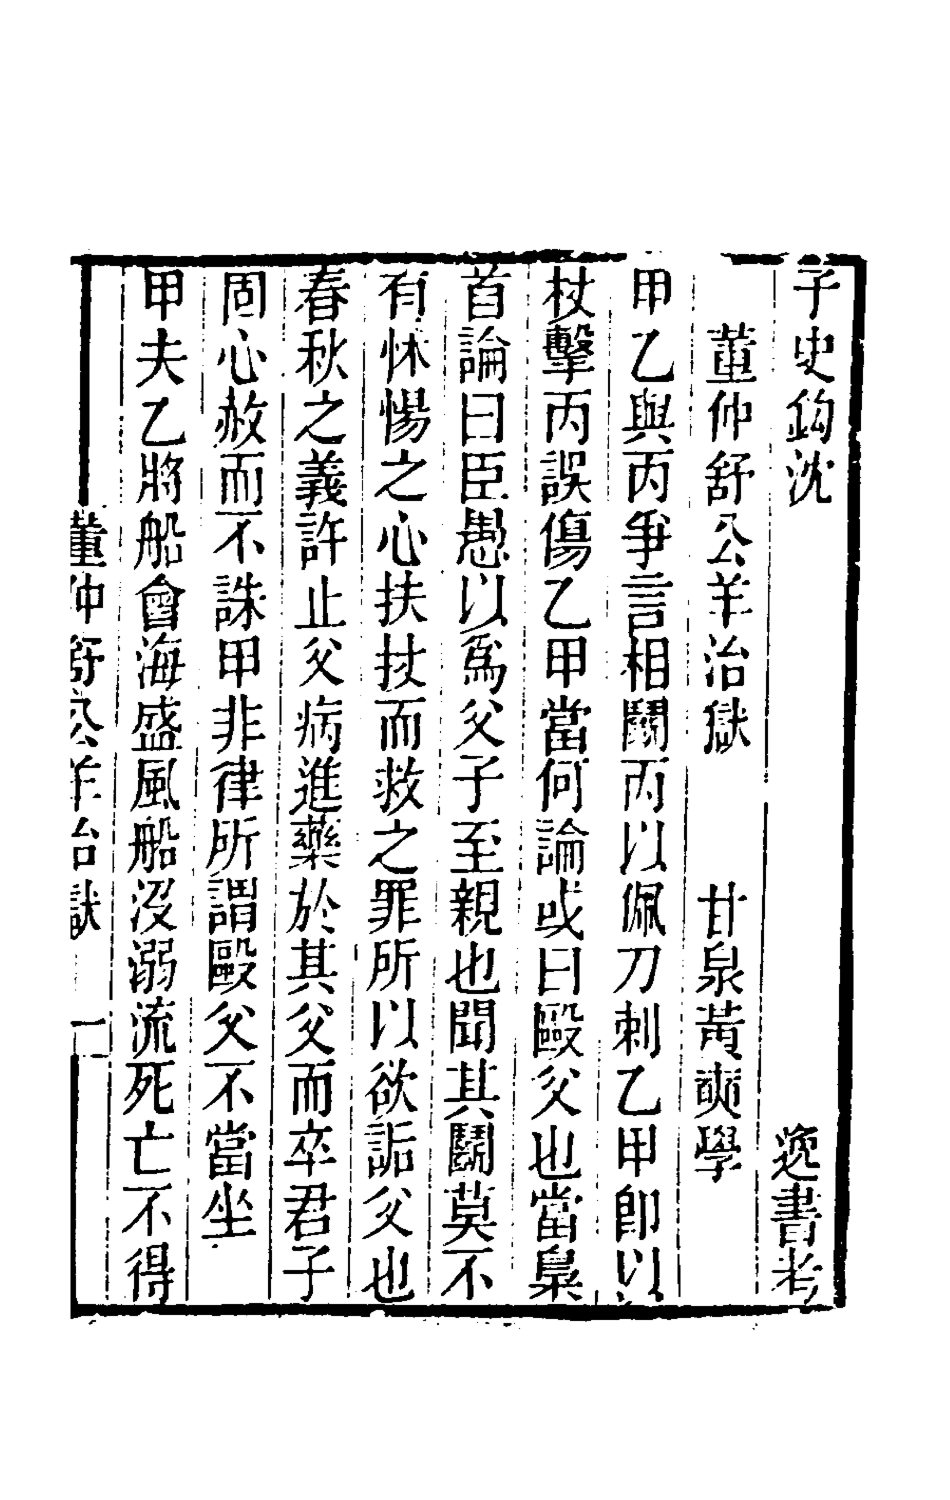 子史鈎沈　逸書考
董仲舒公羊治獄　甘泉黃奭學
甲乙與丙爭言相鬬丙以佩刀刺乙甲卽以
杖擊丙誤傷乙甲當何論或曰毆父也當梟
首論曰臣愚以爲父子至親也聞其鬬莫不
有怵惕之心扶杖而救之罪所以欲詬父也
春秋之義許止父病進藥於其父而卒君子
固心赦而不誅甲非律所謂毆父不當坐
甲夫乙將船會海盛風船沒溺流死亡不得
董仲舒公羊治獄　一